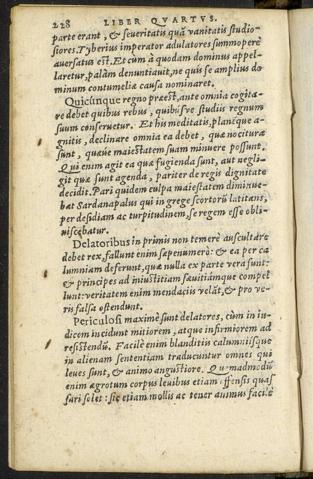 228 LIBER QVARTVS.
parte erant, & seueritatis quã vanitatis studio-
siores. Tyberius imperator adulatores summoperè
auersatus est. Et cùm à quodam dominus appel-
laretur, palàm denuntiauit, ne quis se amplius do
minum contumeliæ causa nominaret.
Quicũnque regno præest, ante omnia cogita-
re debet quibus rebus, quibúsve studiis regnum
suum conseruetur. Et his meditatis, planéque a-
gnitis, declinare omnia ea debet, quæ nocitura
sunt, quæue maiestatem suam minuere possunt.
Qui enim agit ea quæ fugienda sunt, aut negli-
git quæ sunt agenda, pariter de regis dignitate
decidit. Pari quidem culpa maiestatem diminue-
bat Sardanapalus qui in grege scortorũ latitans,
per desidiam ac turpitudinem, se regem esse obli-
uiscebatur.
Delatoribus in primis non temerè auscultare
debet rex, fallunt enim sæpenumerò: & ea per ca
lumniam deferunt, quæ nulla ex parte vera sunt:
& principes ad iniustitiam sæuitiámque compel
lunt: veritatem enim mendaciis velãt, & pro ve-
ris falsa ostendunt.
Periculosi maximè sunt delatores, cùm in iu-
dicem incidunt mitiorem, atque infirmiorem ad
resistendũ. Facilè enim blanditiis calumniisque
in alienam sententiam traducuntur omnes qui
leues sunt, & animo angustiore. Quemadmodũ
enim ægrotum corpus leuibus etiam offensis quas
sari solet: sic etiam mollis ac tener animus facilè